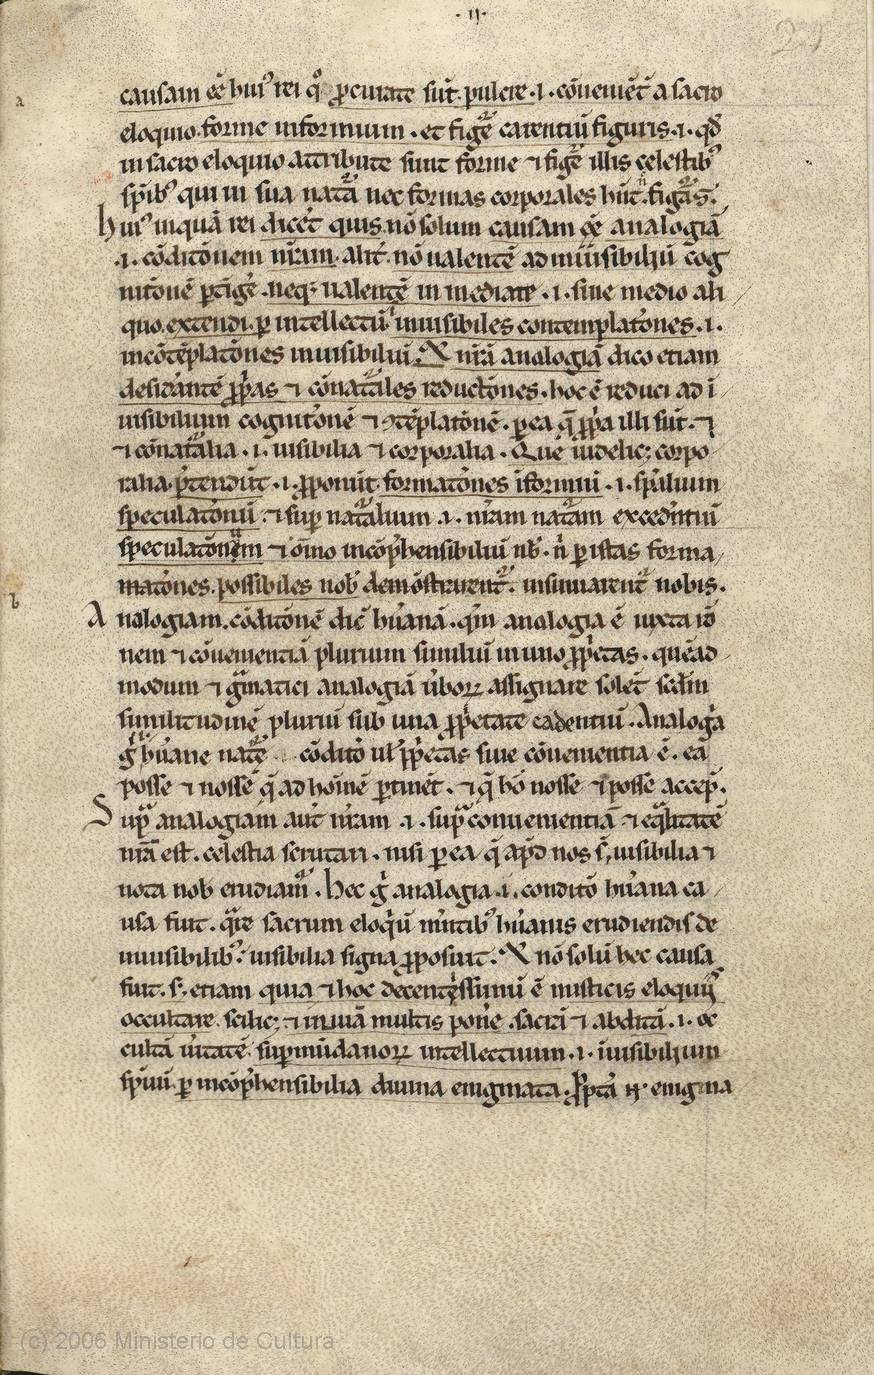 · II ·
29
a
causam eē huiꝰ rei qͥ ꝓcurate sūt. pulcre .i. cōueniēt̄ a sacro
eloquio. forme informium . et figᵉ̄ carentiū figuris .i. qd̄
in sacro eloquio attribute sunt forme ⁊ figᵉ̄ illis celestibꝰ
sp̄ibꝰ qui in sua natᵃ̄ nec formas corporales hn̄t. figᵃs.
huiꝰ inquā rei dicet quis. nō solum causam eē analogiā
.i. cōditōnem nr̄am. alit̄. nō ualentē ad inuisibiliū cog
nitōnē ꝑtigē. neqꝫ ualentē in mediate .i. sine medio ali
quo. extendi. ꝑ intellectū inuisibiles contemplatōnes .i.
incōtēplatōnes inuisibiliū. ⁊ nr̄ā analogiā dico etiam
desidāntē ꝓpͥas ⁊ cōnatᵃles reductōnes. hoc ē reduci ad ī
uisibilium cognitōnē ⁊ ꝯtēplatōnē. ꝑ ea q̄ ꝓpͥa illi sūt. ⁊
⁊ cōnatᵃlia .i. uisibilia ⁊ corporalia . Que uidelicꝫ corpo
ralia. p̄tendūt .i. ꝓponūt formatōnes īformiū .i. sp̄alium
speculatōnū. ⁊ suꝑ natᵃlium .i. nr̄am natᵃm excedentiū
speculatōnum ⁊ oīno incōp̄hensibiliū nb̄. n̄ ꝑ istas forma
matōnes. possibiles nob̄ demōstrarentᷣ. insinuarentᷣ nobis.
b
Analogiam. cōditōnē dic̄ hūanā. qm̄ analogia ē iuxta rō
nem ⁊ cōuenientiā plurium similiū in uno ꝓp̄etas. quēad
modum ⁊ gͣmatici analogiā ūboꝝ assignare solet̄ scd̄m
similitudinē pluriū sub una ꝓp̄etate cadentiū. Analogͣa
gͥ hūane natᵉ̄ cōditō ul̓ ꝓp̄etas siue cōuenientia ē. ea
posse ⁊ nosse q̄ ad hoīnē ꝑtinēt. ⁊ q̄ hō nosse ⁊ posse accep̄.
Supͣ analogiam aut̄ nr̄am .i. supͣ conuenientiā ⁊ eqͣlitatē
nr̄ā est. celestia scrutari. nisi ꝑ ea q̄ apd̄ nos s̄. uisibilia ⁊
nota nob̄ erudiamᷣ. Hec gͥ analogia .i. conditō hūana ca
usa fuit. qͣre sacrum eloqͥū mētibꝰ hūanis erudiendis de
inuisibilibꝰ. uisibilia signa ꝓposuit. ⁊ nō solū hec causa
fuit. s꞉ etiam quia ⁊ hoc decentissimū ē misticis eloquiis
occultare. scilicꝫ ⁊ inuiā multis poneᷣ. sacrā ⁊ abditā .i. oc
cultā ūitatē suꝑmūdanoꝝ intellectuum .i. īuisibilium
sp̄iuū. ꝑ incōp̄hensibilia diuina enigmata. ꝓptͣ n̄. enigma
(c) 2006 Ministerio de Cultura